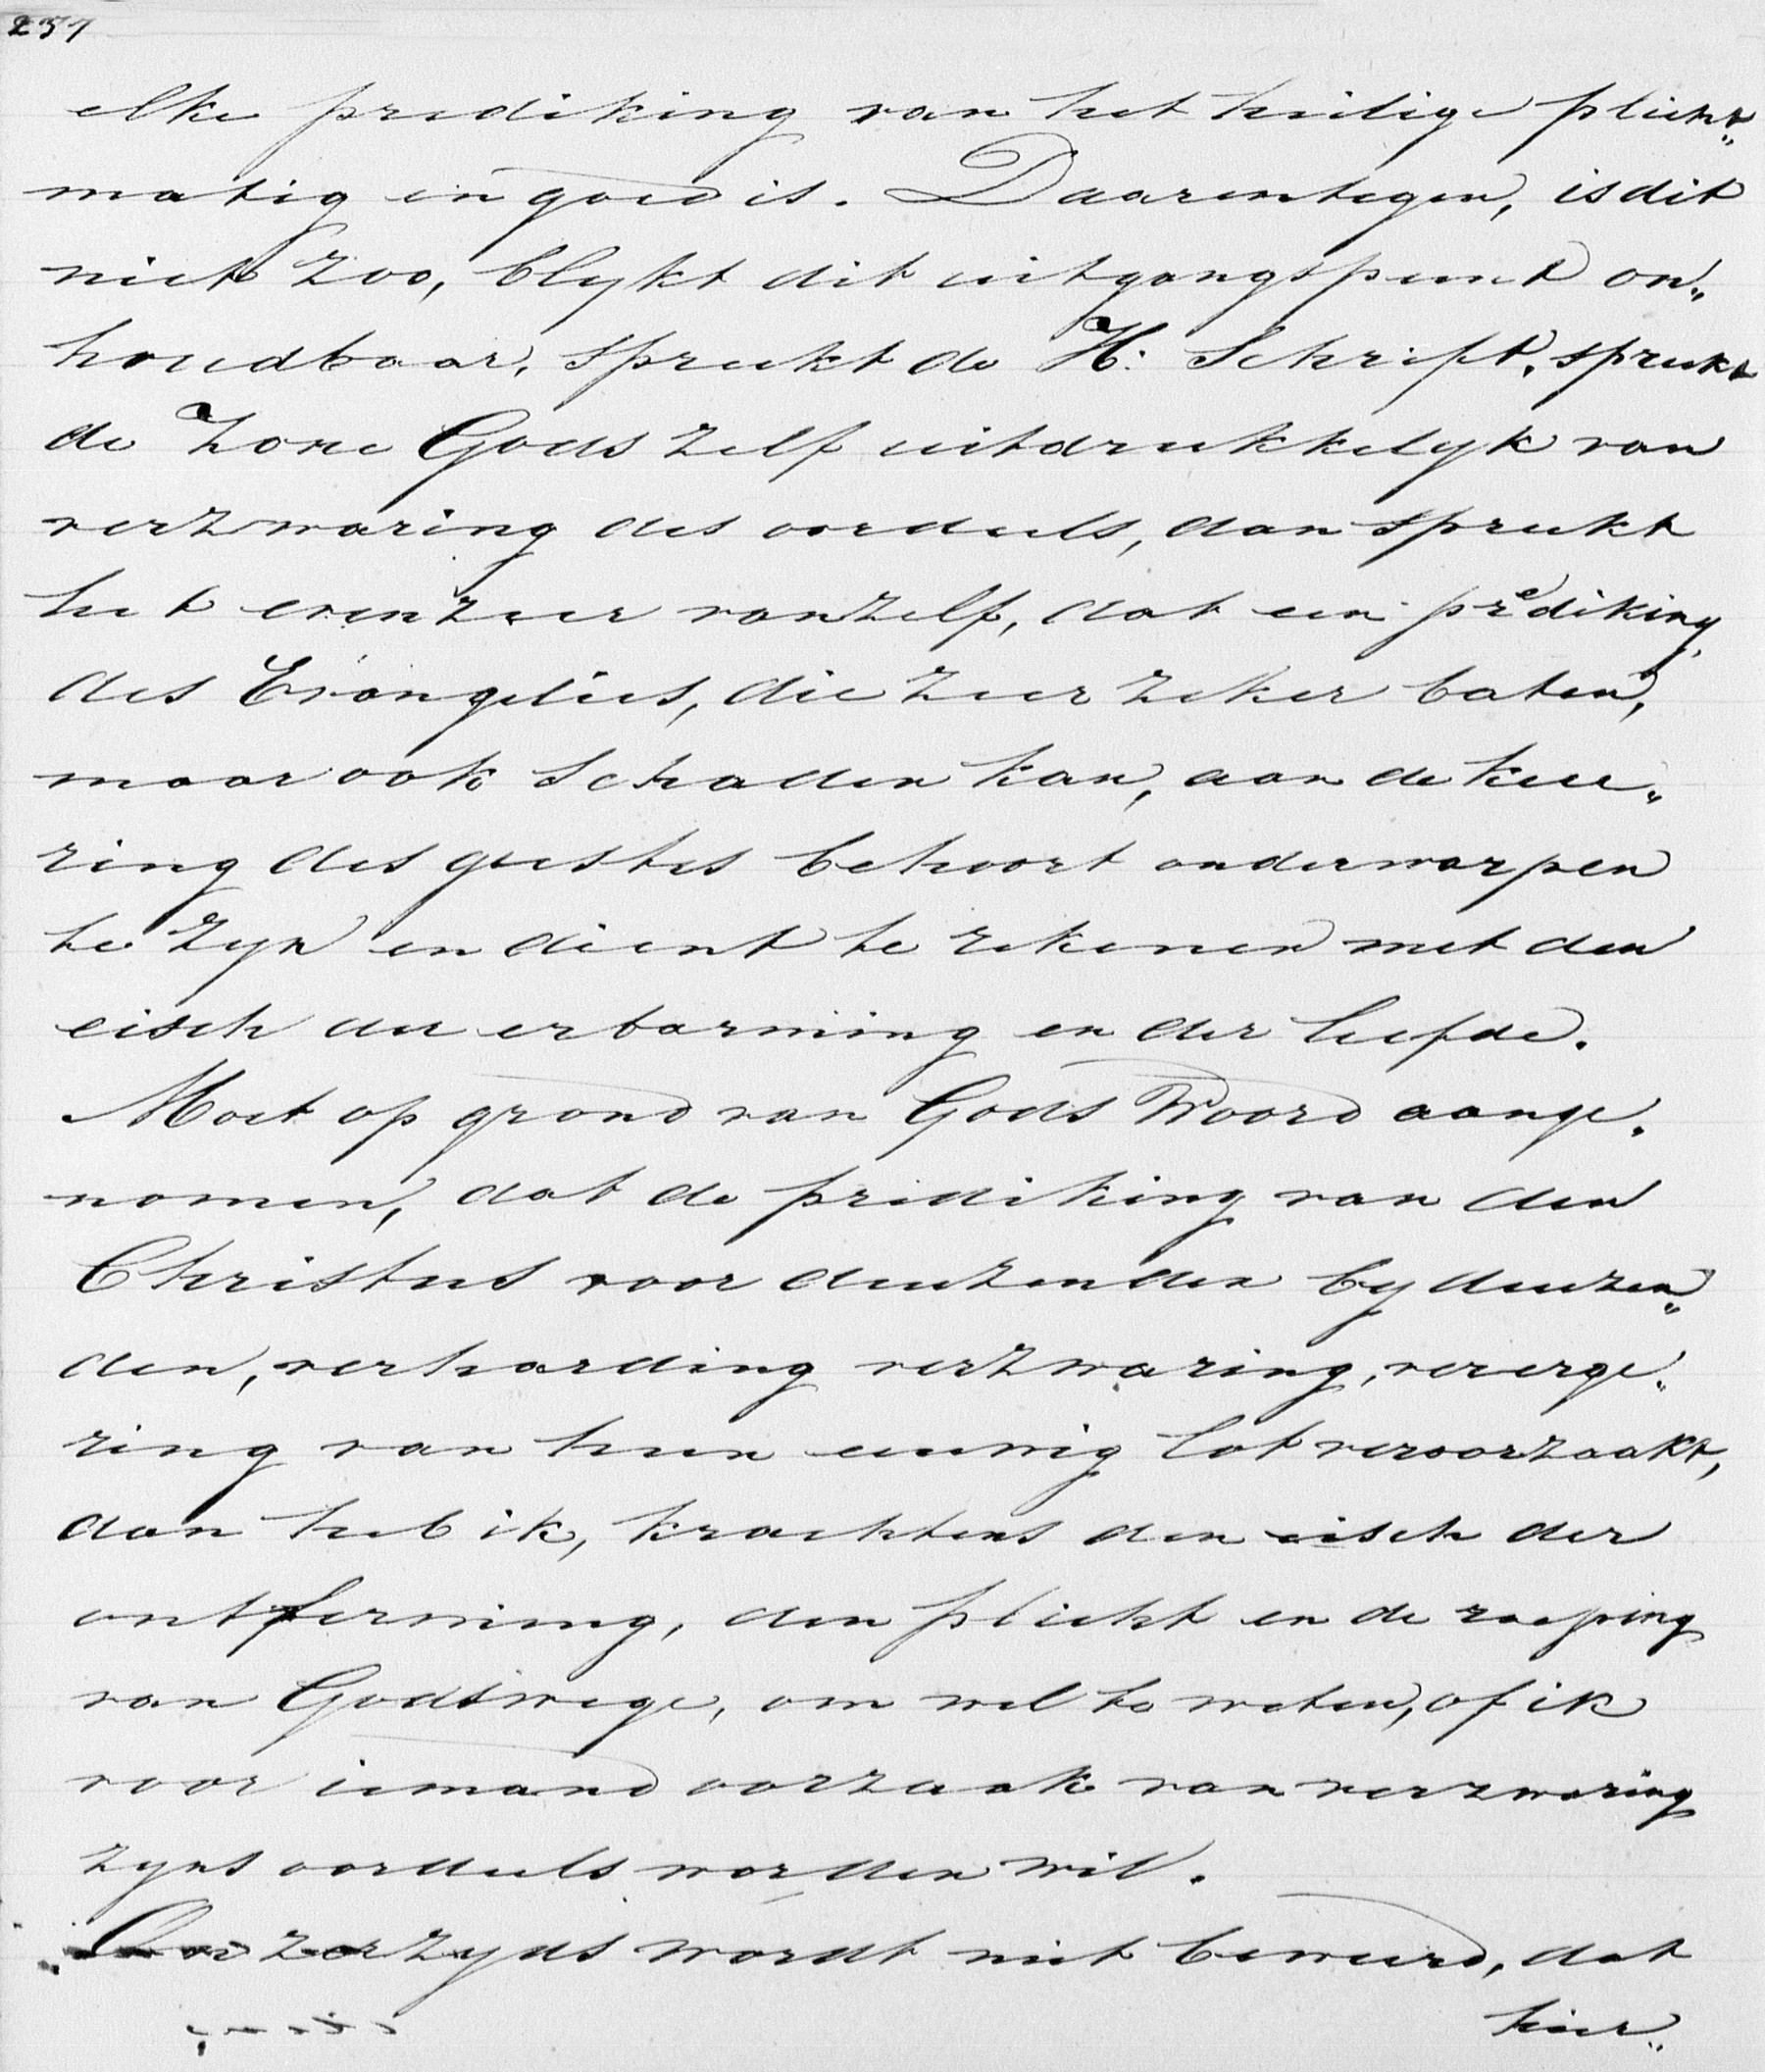 251
elke prediking van het heilige plicht„
matig en goed is. Daarentegen, is dit
niet zoo, blykt dit uitgangspunt on„
houdbaar, spreekt de H: Schrift, spreekt
de Zone Gods zelf uitdrukkelyk van
verzwaring des oordeels, dan spreekt
het evenzeer vanzelf, dat een prediking
des Evangelies, die zeer zeker baten,
maar ook schaden kan, aan de keu„
ring des geestes behoort onderworpen
te zyn en dient te rekenen met den
eisch der erbarming en der liefde.
Moet op grond van Gods Woord aange„
nomen, dat de prediking van den
Christus voor duizenden by duizen„
den, verharding verzwaring, vererge„
ring van hun eeuwig lot veroorzaakt,
dan heb ik, krachtens den eisch der
ontferming, den plicht en de roeping
van Godswege, om wel te weten, of ik
voor iemand oorzaak van verzwaring
zyns oordeels worden wil.
Onzerzyds wordt niet beweerd, dat
hier„